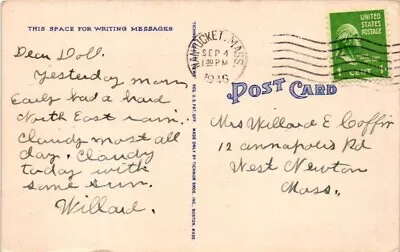 THIS SPACE FOR WRITING MESSAGES
Dear Doll.
Yesterday morn
Early had a hard
North East rain.
Cloudy most all
day. Cloudy
today with
some sun.
Willard.
NANTUCKET, MASS.
SEP 4
1 30 PM
1946
UNITED
STATES
POSTAGE
1 CENT 1
POST CARD
Mrs Willard E Coffin
12 Annapolis Rd
West Newton
Mass.
REG. U.S. PAT. OFF. MADE ONLY BY TICHNOR BROS. INC., BOSTON, MASS.